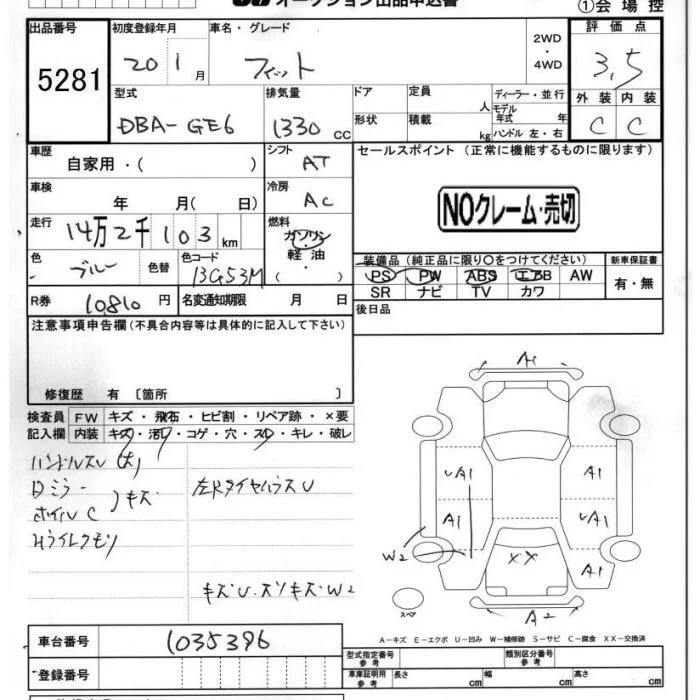 オークション出品申込書
①会場控
出品番号
5281
初度登録年月
20 1 月
車名・グレード
フィット
2WD
・
4WD
評価点
3.5
外装 内装
C C
型式
DBA-GE6
排気量
1330 CC
ドア
形状
定員
人
積載
kg
ディーラー・並行
モデル
年式 年
ハンドル 左・右
車歴
自家用・( )
シフト
AT
セールスポイント (正常に機能するものに限ります)
NOクレーム・売切
車検
年 月( 日)
冷房
AC
走行
14万2千103km
燃料
ガソリン
軽油
( ・ )
色
ブルー
色替
色コード
BG53M
装備品 (純正品に限り○をつけてください)
PS PW ABS エアB AW
SR ナビ TV カワ
新車保証書
有・無
R券
10810円
名変通知期限 月 日
後日品
注意事項申告欄(不具合内容等は具体的に記入して下さい)
修復歴 有 〔箇所 〕
検査員
記入欄
FW キズ・飛石・ヒビ割・リペア跡・×要
内装 キズ・汚レ・コゲ・穴・スレ・キレ・破レ
ハンドルスレ(大)
Dミラー
ホイルC
キズ
Hライトクモリ
左Rタイヤハウス U
キズU.スリキズW2
A1
UA1
A1
A1
UA1
A1
W2
XX
A2
スペア
A-キズ E-エクボ U-凹み W-補修跡 S-サビ C-腐食 XX-交換済
車台番号
1035396
登録番号
型式指定番号
参考
類別区分番号
参考
車庫証明用
参考
長さ cm
幅 cm
高さ cm